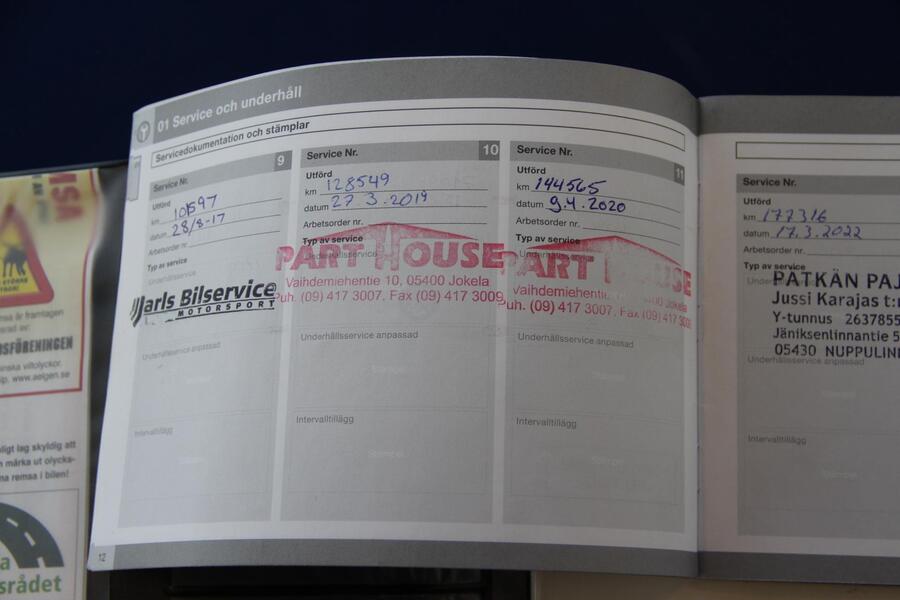 01 Service och underhåll
Servicedokumentation och stämplar
9
Service Nr.
Utförd
km 101597
datum 28/8-17
Arbetsorder nr.
Typ av service
Underhållsservice
Jarls Bilservice
MOTORSPORT
Underhållsservice anpassad
Intervalltillägg
10
Service Nr.
Utförd
km 128549
datum 27 3.2019
Arbetsorder nr.
Typ av service
Underhållsservice
PART HOUSE
Vaihdemiehentie 10, 05400 Jokela
Puh. (09) 417 3007, Fax (09) 417 3009
Underhållsservice anpassad
Stämpel
Intervalltillägg
Stämpel
11
Service Nr.
Utförd
km 144565
datum 9.4.2020
Arbetsorder nr.
Typ av service
Underhållsservice
PART HOUSE
Vaihdemiehentie 10, 05400 Jokela
Puh. (09) 417 3007, Fax (09) 417 3009
Underhållsservice anpassad
Stämpel
Intervalltillägg
Stämpel
12
Service Nr.
Utförd
km 177316
datum 17.3.2022
Arbetsorder nr.
Typ av service
PATKÄN PAJ
Jussi Karajas t:m
Y-tunnus 2637855
Jäniksenlinnantie 5
05430 NUPPULIN
Underhållsservice anpassad
Intervalltillägg
SFÖRENINGEN
inska viltolyckor.
www.aelgen.se
ligt lag skyldig att
märka ut olycks-
na remsa i bilen!
srådet